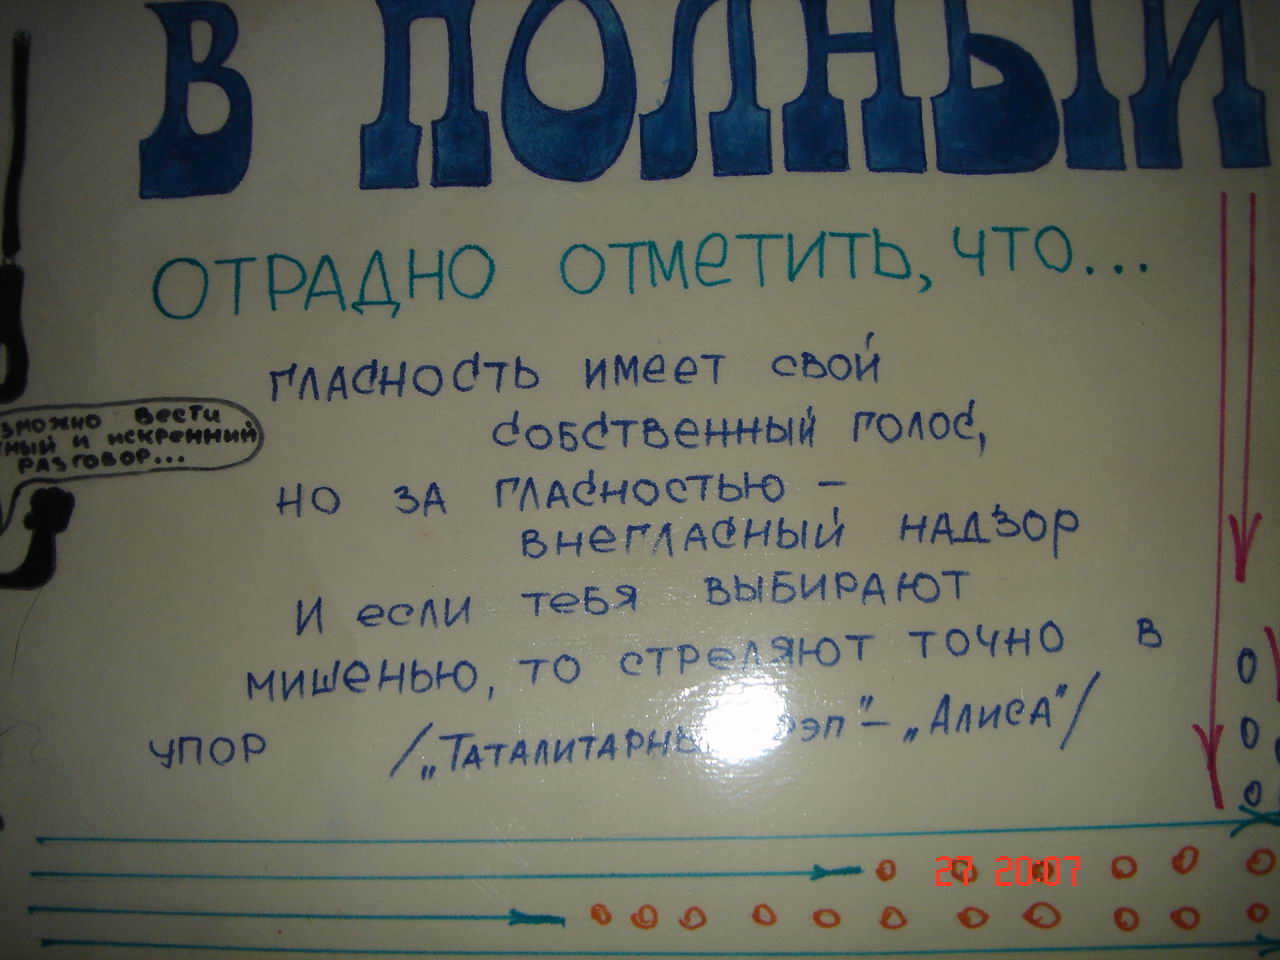 В ПОЛНЫЙ
ОТРАДНО ОТМЕТИТЬ, ЧТО...
ГЛАСНОСТЬ ИМЕЕТ СВОЙ
СОБСТВЕННЫЙ ГОЛОС,
НО ЗА ГЛАСНОСТЬЮ –
ВНЕГЛАСНЫЙ НАДЗОР
И ЕСЛИ ТЕБЯ ВЫБИРАЮТ
МИШЕНЬЮ, ТО СТРЕЛЯЮТ ТОЧНО В
УПОР /„ТАТАЛИТАРНЫ РЭП"– „АЛИСА"/
ЗМОЖНО ВЕСТИ
ТНЫЙ И ИСКРЕННИЙ
РАЗГОВОР...
27 2007